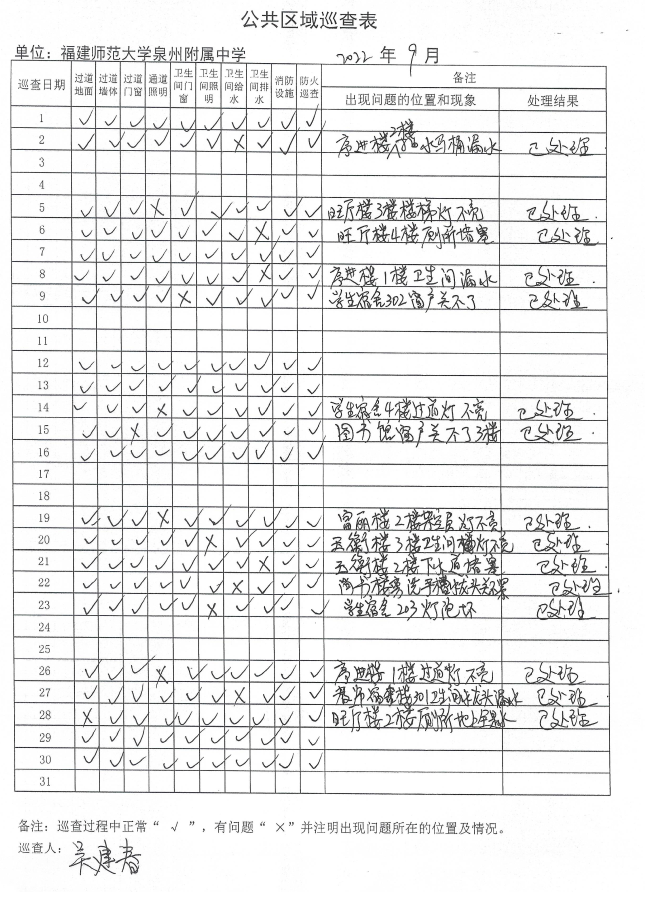 公共区域巡查表
单位：福建师范大学泉州附属中学 2022 年 9 月
巡查日期 过道地面 过道墙体 过道门窗 通道照明 卫生间门窗 卫生间照明 卫生间给水 卫生间排水 消防设施 防火巡查 备注
出现问题的位置和现象 处理结果
1 √ √ √ √ √ √ √ √ √ √
2 √ √ √ √ √ √ × √ √ √ 序进楼2楼 水马桶漏水 已处理
3
4
5 √ √ √ × √ √ √ √ √ √ 旺厅楼3楼楼梯灯不亮 已处理.
6 √ √ √ √ √ √ √ × √ √ 旺厅楼4楼厕所堵塞 已处理.
7 √ √ √ √ √ √ √ √ √ √
8 √ √ √ √ √ √ √ × √ √ 序进楼1楼卫生间漏水 已处理.
9 √ √ √ √ × √ √ √ √ √ 学生宿舍302窗户关不了 已处理
10
11
12 √ √ √ √ √ √ √ √ √ √
13 √ √ √ √ √ √ √ √ √ √
14 √ √ √ × √ √ √ √ √ √ 学生宿舍4楼过道灯不亮 已处理.
15 √ √ × √ √ √ √ √ √ √ 图书馆窗户关不了3楼 已处理.
16 √ √ √ √ √ √ √ √ √ √
17
18
19 √ √ √ × √ √ √ √ √ √ 富丽楼2楼 灯不亮 已处理.
20 √ √ √ √ √ × √ √ √ √ 玉衡楼3楼卫生间 灯不亮 已处理.
21 √ √ √ √ √ √ √ × √ √ 玉衡楼2楼下水道堵塞 已处理.
22 √ √ √ √ √ √ × √ √ √ 图书楼男洗手槽 头关不 已处理.
23 √ √ √ √ √ × √ √ √ √ 学生宿舍203灯泡坏 已处理.
24
25
26 √ √ √ × √ √ √ √ √ √ 序进楼1楼过道灯不亮 已处理
27 √ √ √ √ √ √ × √ √ √ 教师宿舍楼301卫生间水龙头漏水 已处理.
28 × √ √ √ √ √ √ √ √ √ 旺厅楼2楼厕所地 水 已处理.
29 √ √ √ √ √ √ √ √ √ √
30 √ √ √ √ √ √ √ √ √ √
31
备注：巡查过程中正常“ √ ”，有问题“ ×”并注明出现问题所在的位置及情况。
巡查人：吴建春